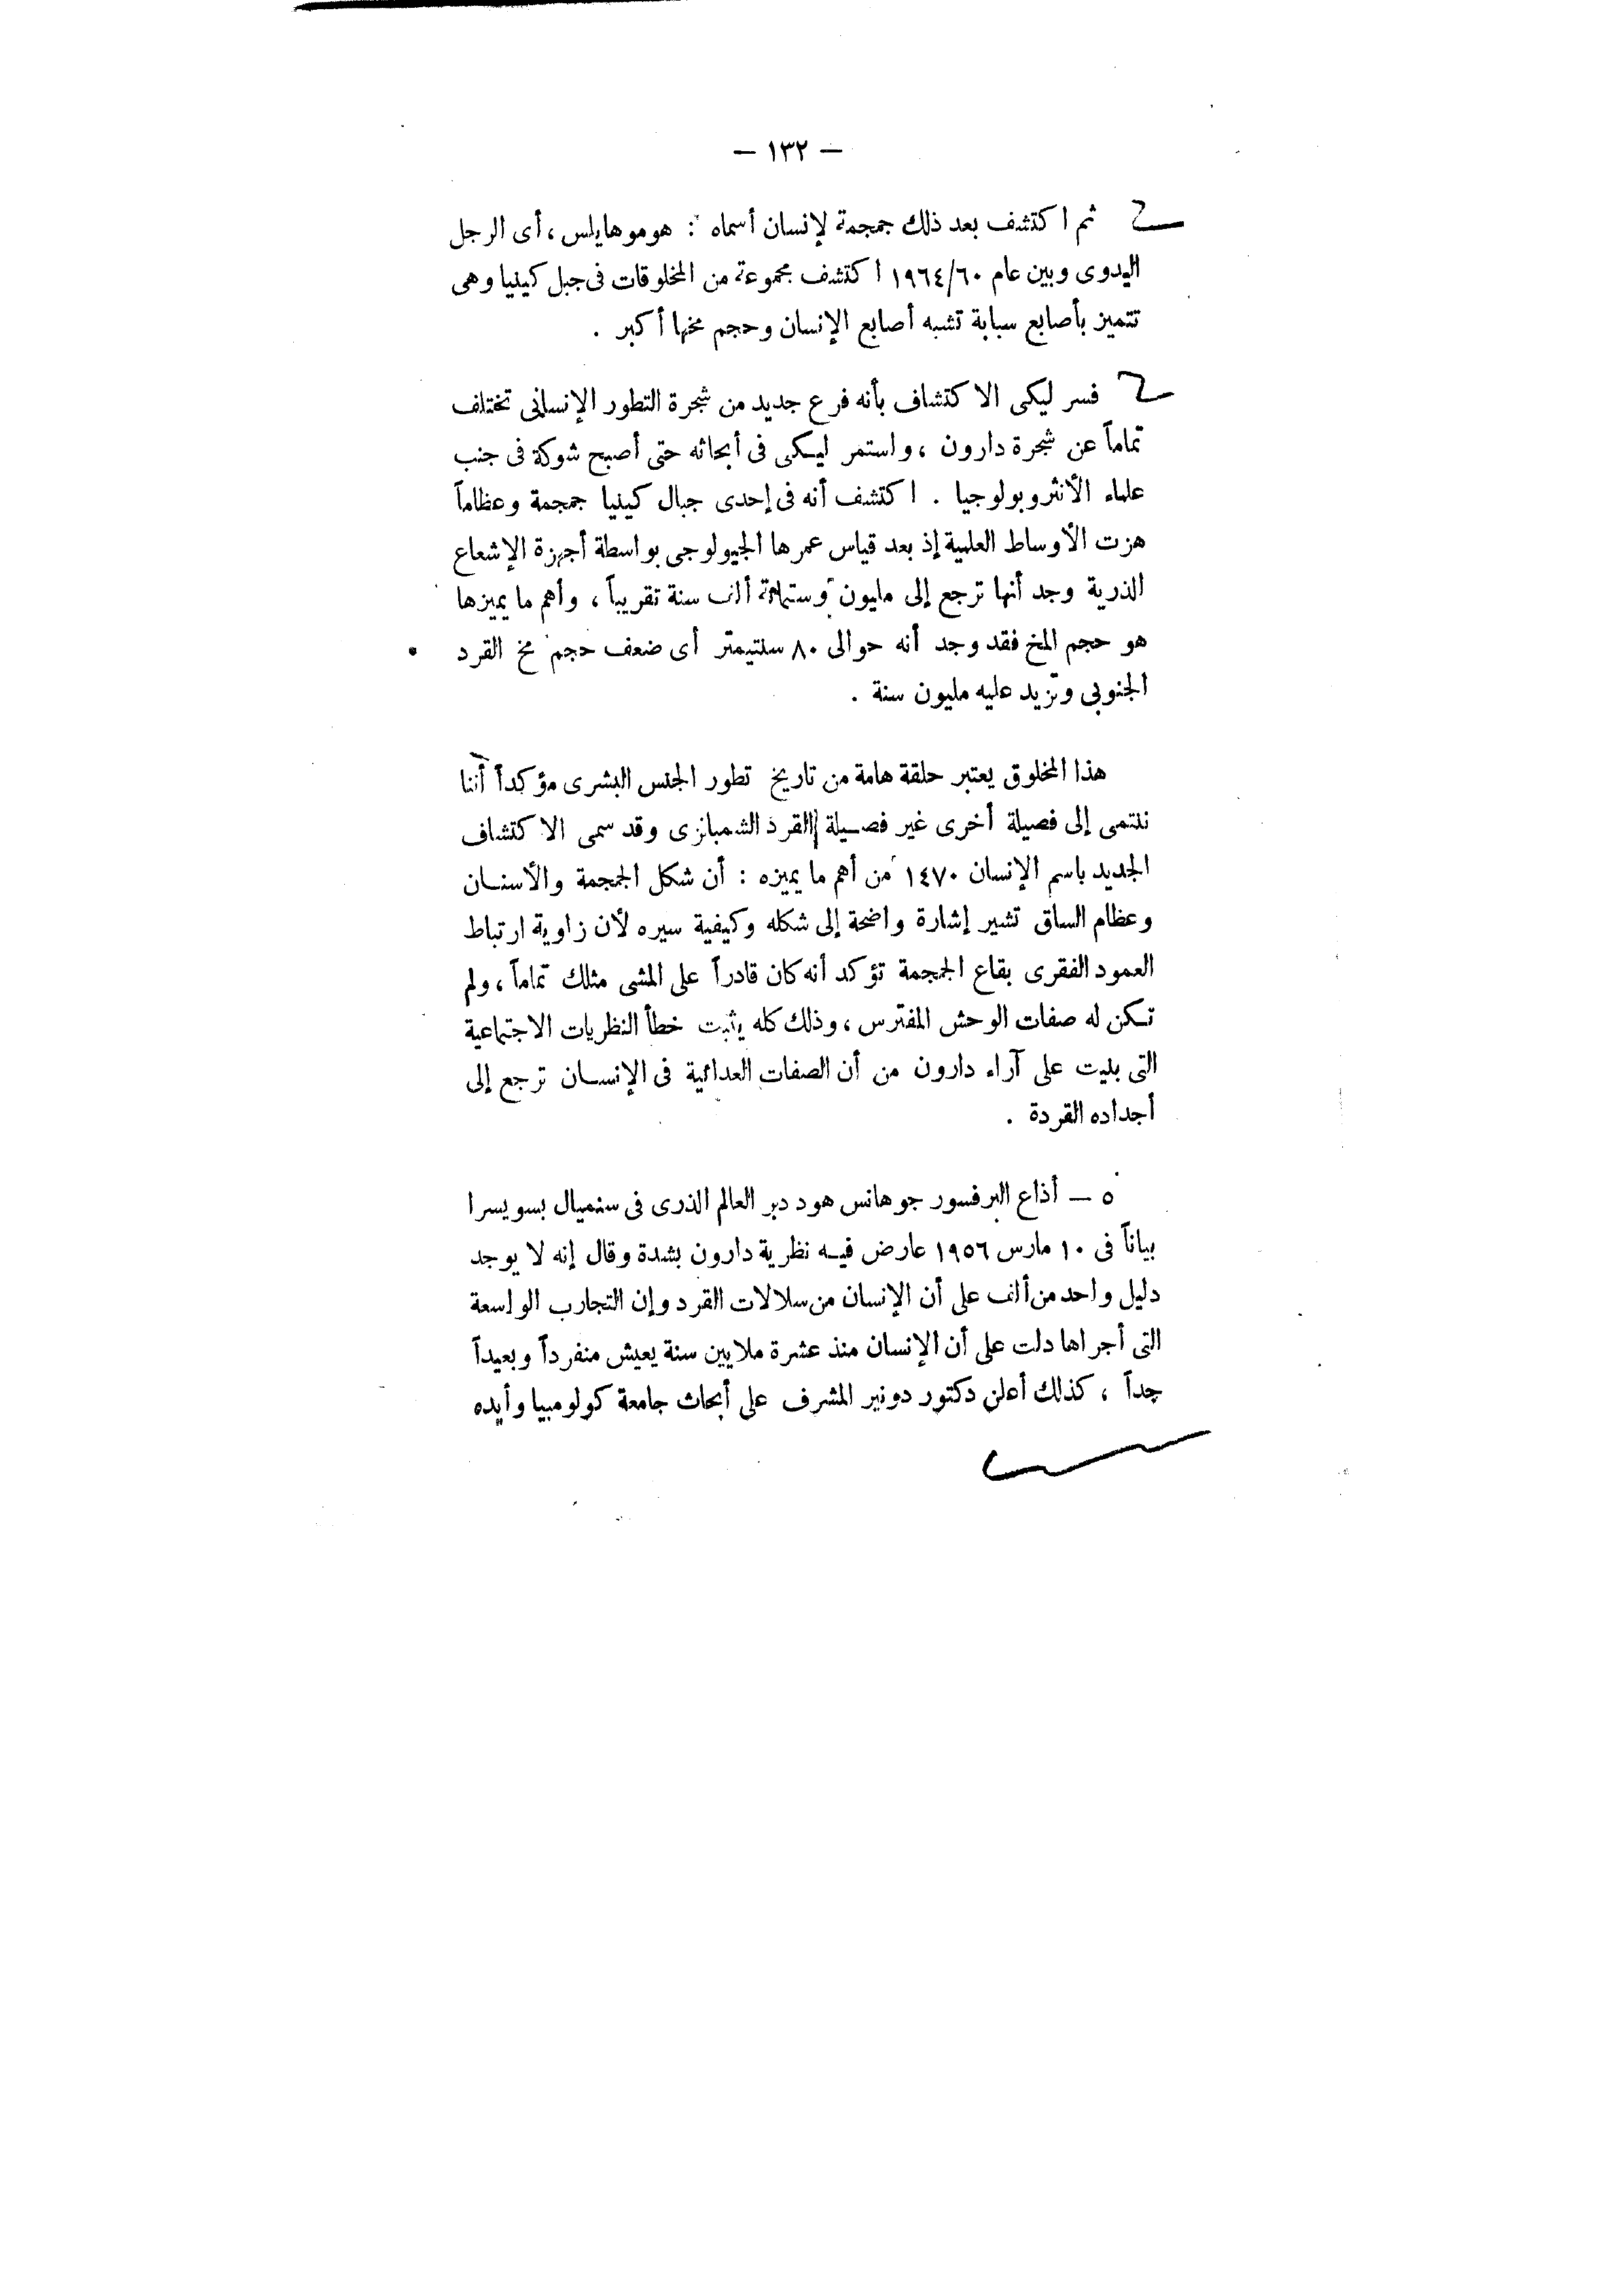 — ١٣٢ —
ثم اكتشف بعد ذلك جمجمة لإنسان أسماه : هوموهايلس ، أى الرجل
اليدوى وبين عام ١٩٦٤/٦٠ اكتشف مجموعة من المخلوقات فى جبل كينيا وهى
تتميز بأصابع سبابة تشبه أصابع الإنسان وحجم مخها أكبر .
فسر ليكى الاكتشاف بأنه فرع جديد من شجرة التطور الإنسانى تختلف
تماماً عن شجرة دارون ، واستمر ليكى فى أبحاثه حتى أصبح شوكة فى جنب
علماء الأنثروبولوجيا . اكتشف أنه فى إحدى جبال كينيا جمجمة وعظاماً
هزت الأوساط العلمية إذ بعد قياس عمرها الجيولوجى بواسطة أجهزة الإشعاع
الذرية وجد أنها ترجع إلى مليون وستمائة ألف سنة تقريباً ، وأهم ما يميزها
هو حجم المخ فقد وجد أنه حوالى ٨٠ سنتيمتر أى ضعف حجم مخ القرد
الجنوبى وتزيد عليه مليون سنة .
هذا المخلوق يعتبر حلقة هامة من تاريخ تطور الجنس البشرى مؤكداً أننا
ننتمى إلى فصيلة أخرى غير فصيلة القرد الشمبانزى وقد سمى الاكتشاف
الجديد باسم الإنسان ١٤٧٠ من أهم ما يميزه : أن شكل الجمجمة والأسنان
وعظام الساق تشير إشارة واضحة إلى شكله وكيفية سيره لأن زاوية ارتباط
العمود الفقرى بقاع الجمجمة تؤكد أنه كان قادراً على المشى مثلك تماماً ، ولم
تكن له صفات الوحش المفترس ، وذلك كله يثبت خطأ النظريات الاجتماعية
التى بنيت على آراء دارون من أن الصفات العدائية فى الإنسان ترجع إلى
أجداده القردة .
٥ — أذاع البرفسور جوهانس هود دبر العالم الذرى فى سنميال بسويسرا
بياناً فى ١٠ مارس ١٩٥٦ عارض فيه نظرية دارون بشدة وقال إنه لا يوجد
دليل واحد من ألف على أن الإنسان من سلالات القرد وإن التجارب الواسعة
التى أجراها دلت على أن الإنسان منذ عشرة ملايين سنة يعيش منفرداً وبعيداً
جداً ، كذلك أعلن دكتور دونير المشرف على أبحاث جامعة كولومبيا وأيده